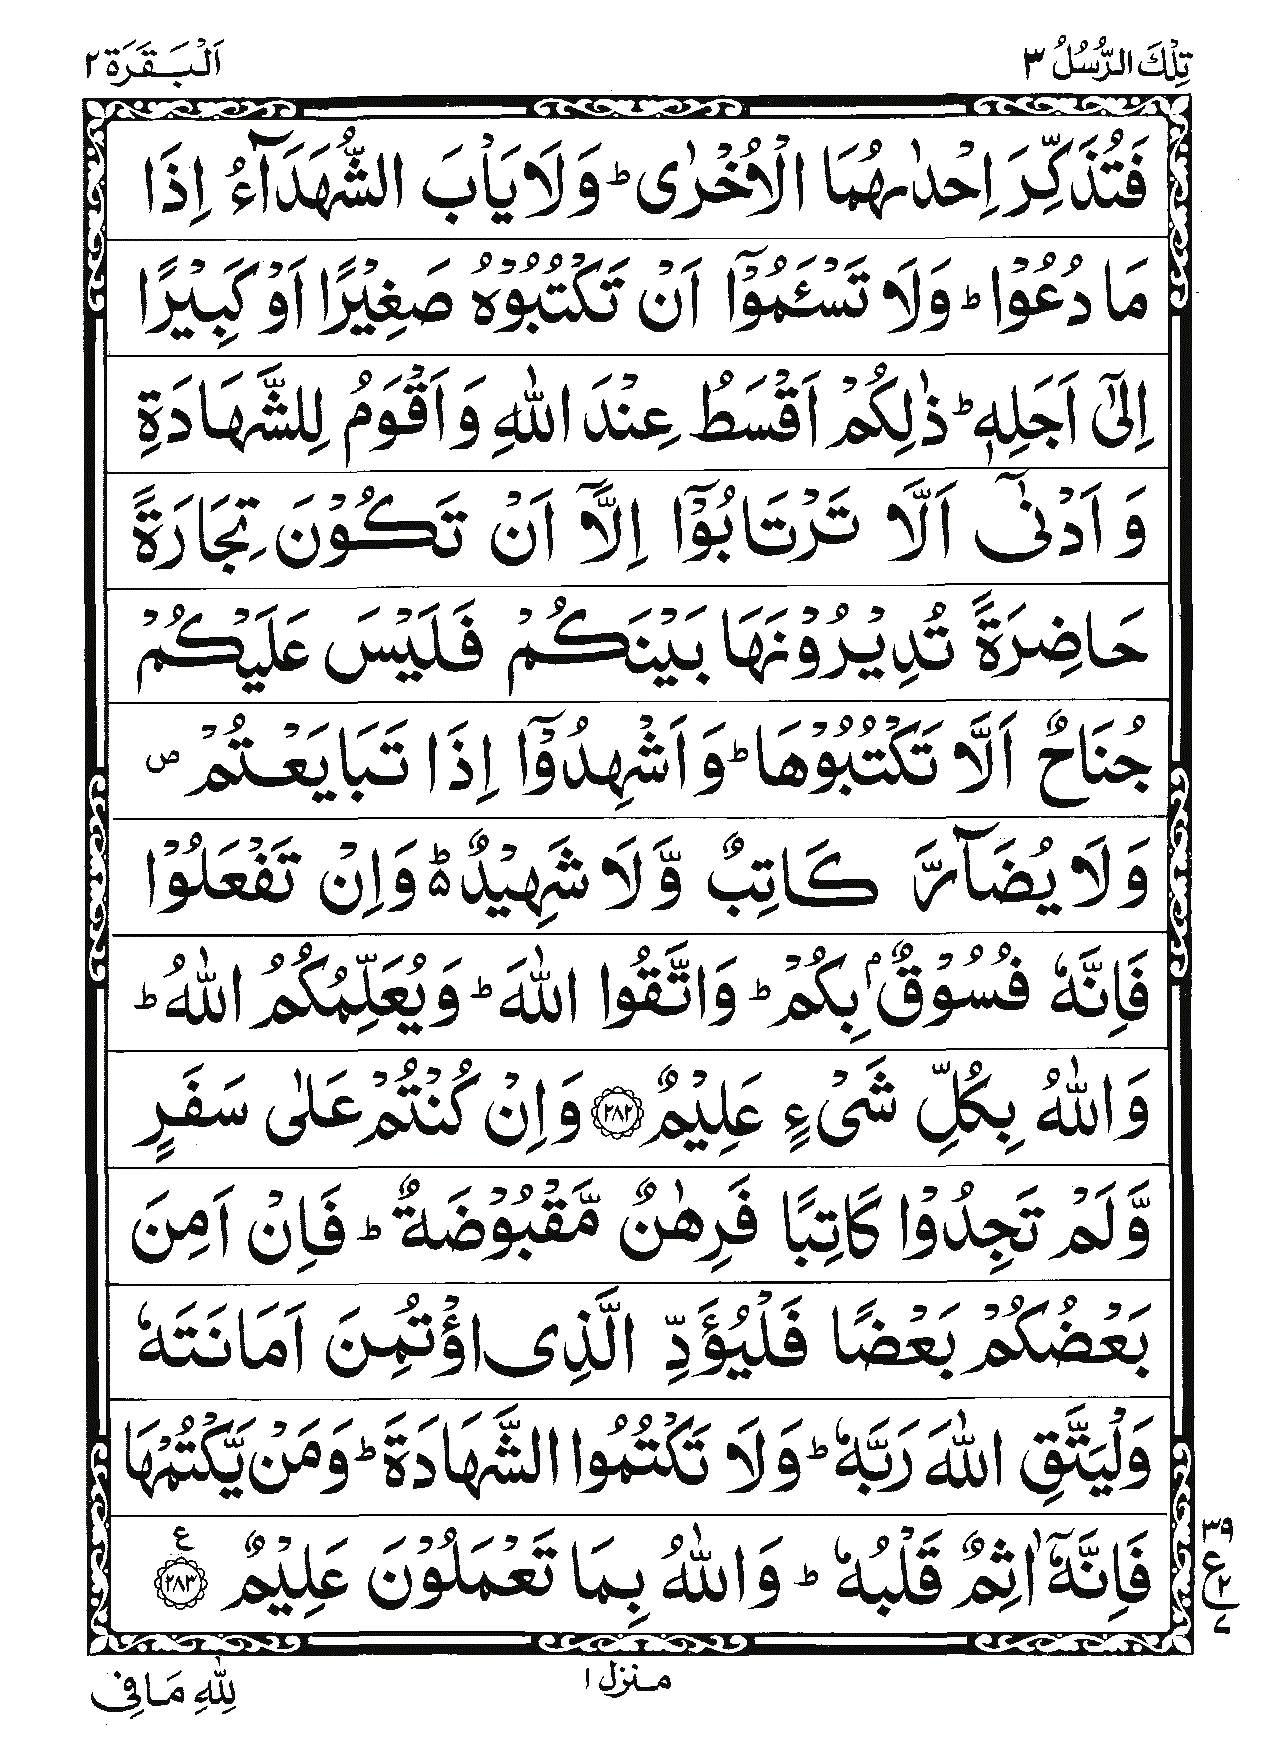 تِلْكَ الرُّسُلُ ٣
اَلْبَقَرَة ٢
فَتُذَكِّرَ اِحْدٰىهُمَا الْاُخْرٰى ؕ وَلَا يَاْبَ الشُّهَدَآءُ اِذَا
مَا دُعُوْا ؕ وَلَا تَسْـَٔمُوْۤا اَنْ تَكْتُبُوْهُ صَغِيْرًا اَوْ كَبِيْرًا
اِلٰٓى اَجَلِهٖ ؕ ذٰلِكُمْ اَقْسَطُ عِنْدَ اللّٰهِ وَاَقْوَمُ لِلشَّهَادَةِ
وَاَدْنٰٓى اَلَّا تَرْتَابُوْۤا اِلَّاۤ اَنْ تَكُوْنَ تِجَارَةً
حَاضِرَةً تُدِيْرُوْنَهَا بَيْنَكُمْ فَلَيْسَ عَلَيْكُمْ
جُنَاحٌ اَلَّا تَكْتُبُوْهَا ؕ وَاَشْهِدُوْۤا اِذَا تَبَايَعْتُمْ ص
وَلَا يُضَآرَّ كَاتِبٌ وَّلَا شَهِيْدٌ ؕ۵ وَاِنْ تَفْعَلُوْا
فَاِنَّهٗ فُسُوْقٌۢ بِكُمْ ؕ وَاتَّقُوا اللّٰهَ ؕ وَيُعَلِّمُكُمُ اللّٰهُ ؕ
وَاللّٰهُ بِكُلِّ شَیْءٍ عَلِيْمٌ ﴿٢٨٢﴾ وَاِنْ كُنْتُمْ عَلٰى سَفَرٍ
وَّلَمْ تَجِدُوْا كَاتِبًا فَرِهٰنٌ مَّقْبُوْضَةٌ ؕ فَاِنْ اَمِنَ
بَعْضُكُمْ بَعْضًا فَلْيُؤَدِّ الَّذِى اؤْتُمِنَ اَمَانَتَهٗ
وَلْيَتَّقِ اللّٰهَ رَبَّهٗ ؕ وَلَا تَكْتُمُوا الشَّهَادَةَ ؕ وَمَنْ يَّكْتُمْهَا
فَاِنَّهٗۤ اٰثِمٌ قَلْبُهٗ ؕ وَاللّٰهُ بِمَا تَعْمَلُوْنَ عَلِيْمٌ ﴿٢٨٣﴾ ع
٣٩
ع
٢
٧
منزل ١
لِلّٰهِ مَا فِى